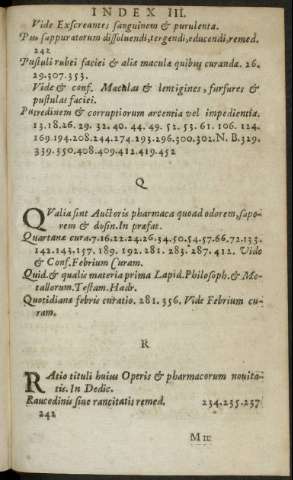 INDEX III.
Vide Exscreantes sanguinem & purulenta.
Pus suppuratorum dissoluendi, tergendi, educendi, remed.
242
Pustuli rubei faciei & aliæ maculæ quibus curandæ. 26.
29.307.353.
Vide & conf. Maculas & lentigines, furfures &
pustulas faciei.
Putredinem & corruptionem arcentia vel impedientia.
13.18.26.29.32.40.44.49.52.53.61.106.124.
169.194.208.244.274.293.296.300.302.N.B.329.
339.350.408.409.412.419.452
Q
QValia sint Auctoris pharmaca quoad odorem, sapo-
rem & dosin. In præfat.
Quartanæ cura.7.16.22.24.26.34.50.54.57.66.72.133.
142.143.157.189.192.281.283.287.412. Vide
& Conf. Febrium Curam.
Quid & qualis materia prima Lapid. Philosoph. & Me-
tallorum. Testam. Hadr.
Quotidianæ febris curatio. 281.356. Vide Febrium cu-
ram.
R
RAtio tituli huius Operis & pharmacorum nouita-
tis. In Dedic.
Raucedinis siue rancitatis remed. 234.235.237
242